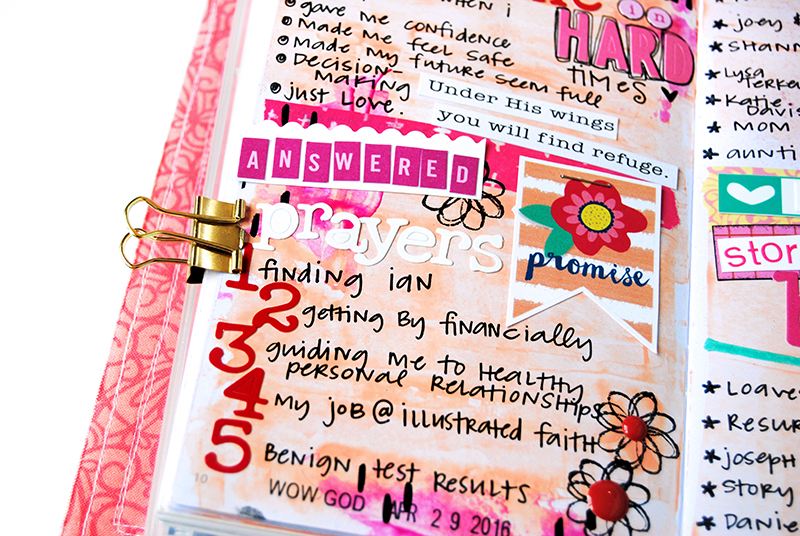 WHEN I
gave me confidence
Made me feel safe
Made my future seem full
Decision-
Making
just Love.
in
HARD
TIMES
Under His wings
you will find refuge.
ANSWERED
prayers
promise
1 finding ian
2 getting by financially
3 guiding me to Healthy
personal relationships
4 My job @ illustrated faith
5 Benign test results
WOW GOD APR 29 2016
10
joey
SHANN
Lysa
Terke
Katie
Davis
MOM
aunti
stor
Loave
Resur
joseph
Story
Danie